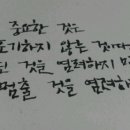 중요한 것은
포기하지 않은 것이다
된 것을 염려하지 말
멈출 것을 염려하